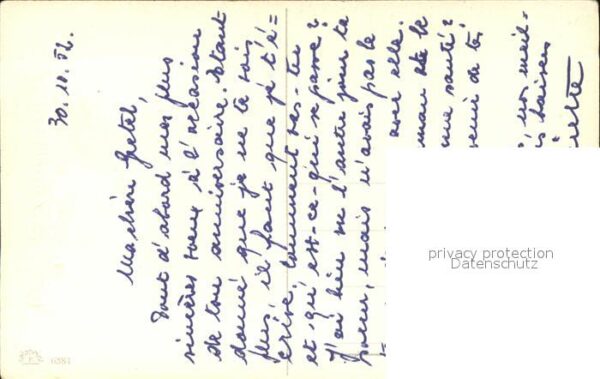 30.10.52.
Ma chère Gretel,
Tout d'abord mes plus
sincères voeux à l'occasion
de ton anniversaire. Etant
donné que je ne te vois
plus, il faut que je t'é=
crive. Comment vas-tu
et qui est-ce-qui se passe?
J'ai bien vu l'autre jour ta
soeur, mais n'avais pas le
avec elle.
man de la
une santé?
venir de toi
, nos meil-
s baisers
ette
privacy protection
Datenschutz
6381